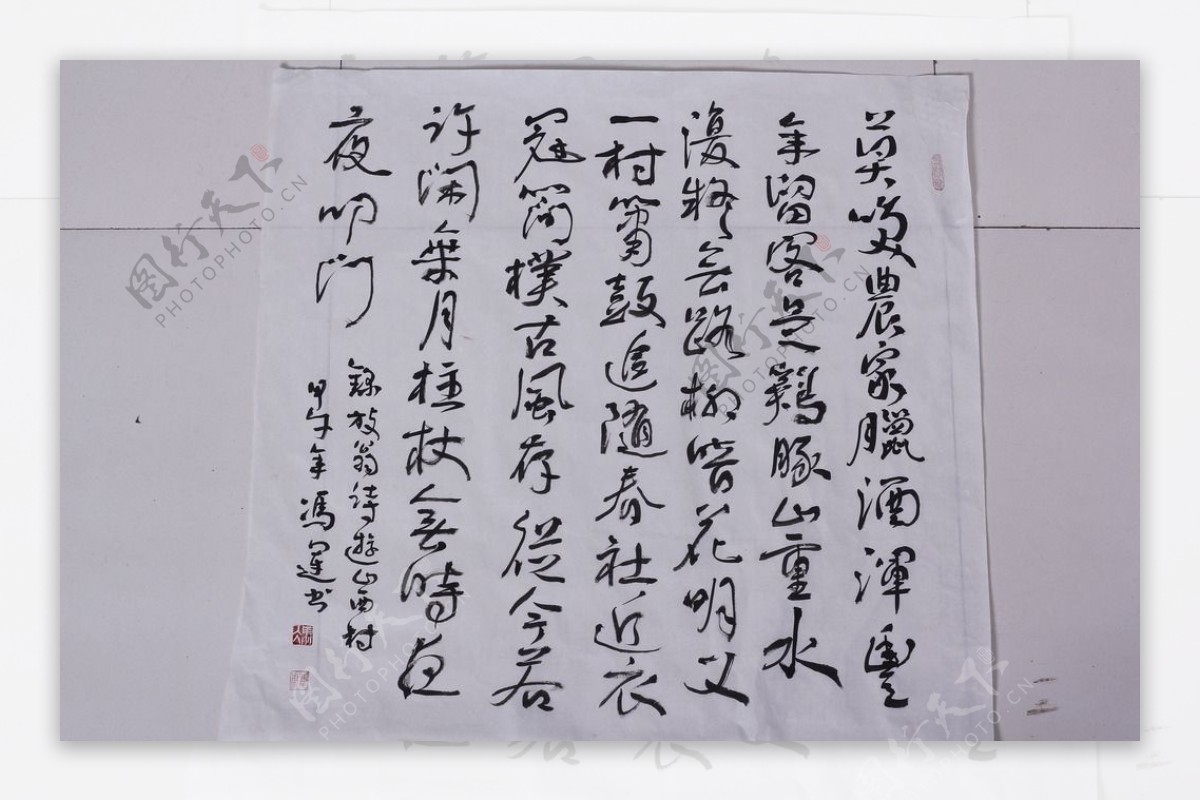 莫笑農家臘酒渾豐
年留客足鷄豚山重水
複疑無路柳暗花明又
一村簫鼓追隨春社近衣
冠簡樸古風存從今若
許閑乗月柱杖無時夜
夜叩門
錄放翁詩遊山西村
甲午年馮運书
图行天下
PHOTOPHOTO.CN
图行天下
PHOTOPHOTO.CN
图行天下
PHOTOPHOTO.CN
图行天下
PHOTOPHOTO.CN